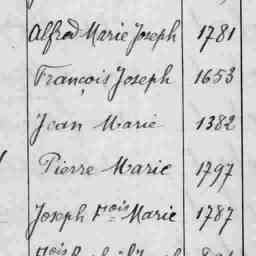 Alfred Marie Joseph 1781
François Joseph 1653
Jean Marie 1382
Pierre Marie 1797
Joseph Fois Marie 1787